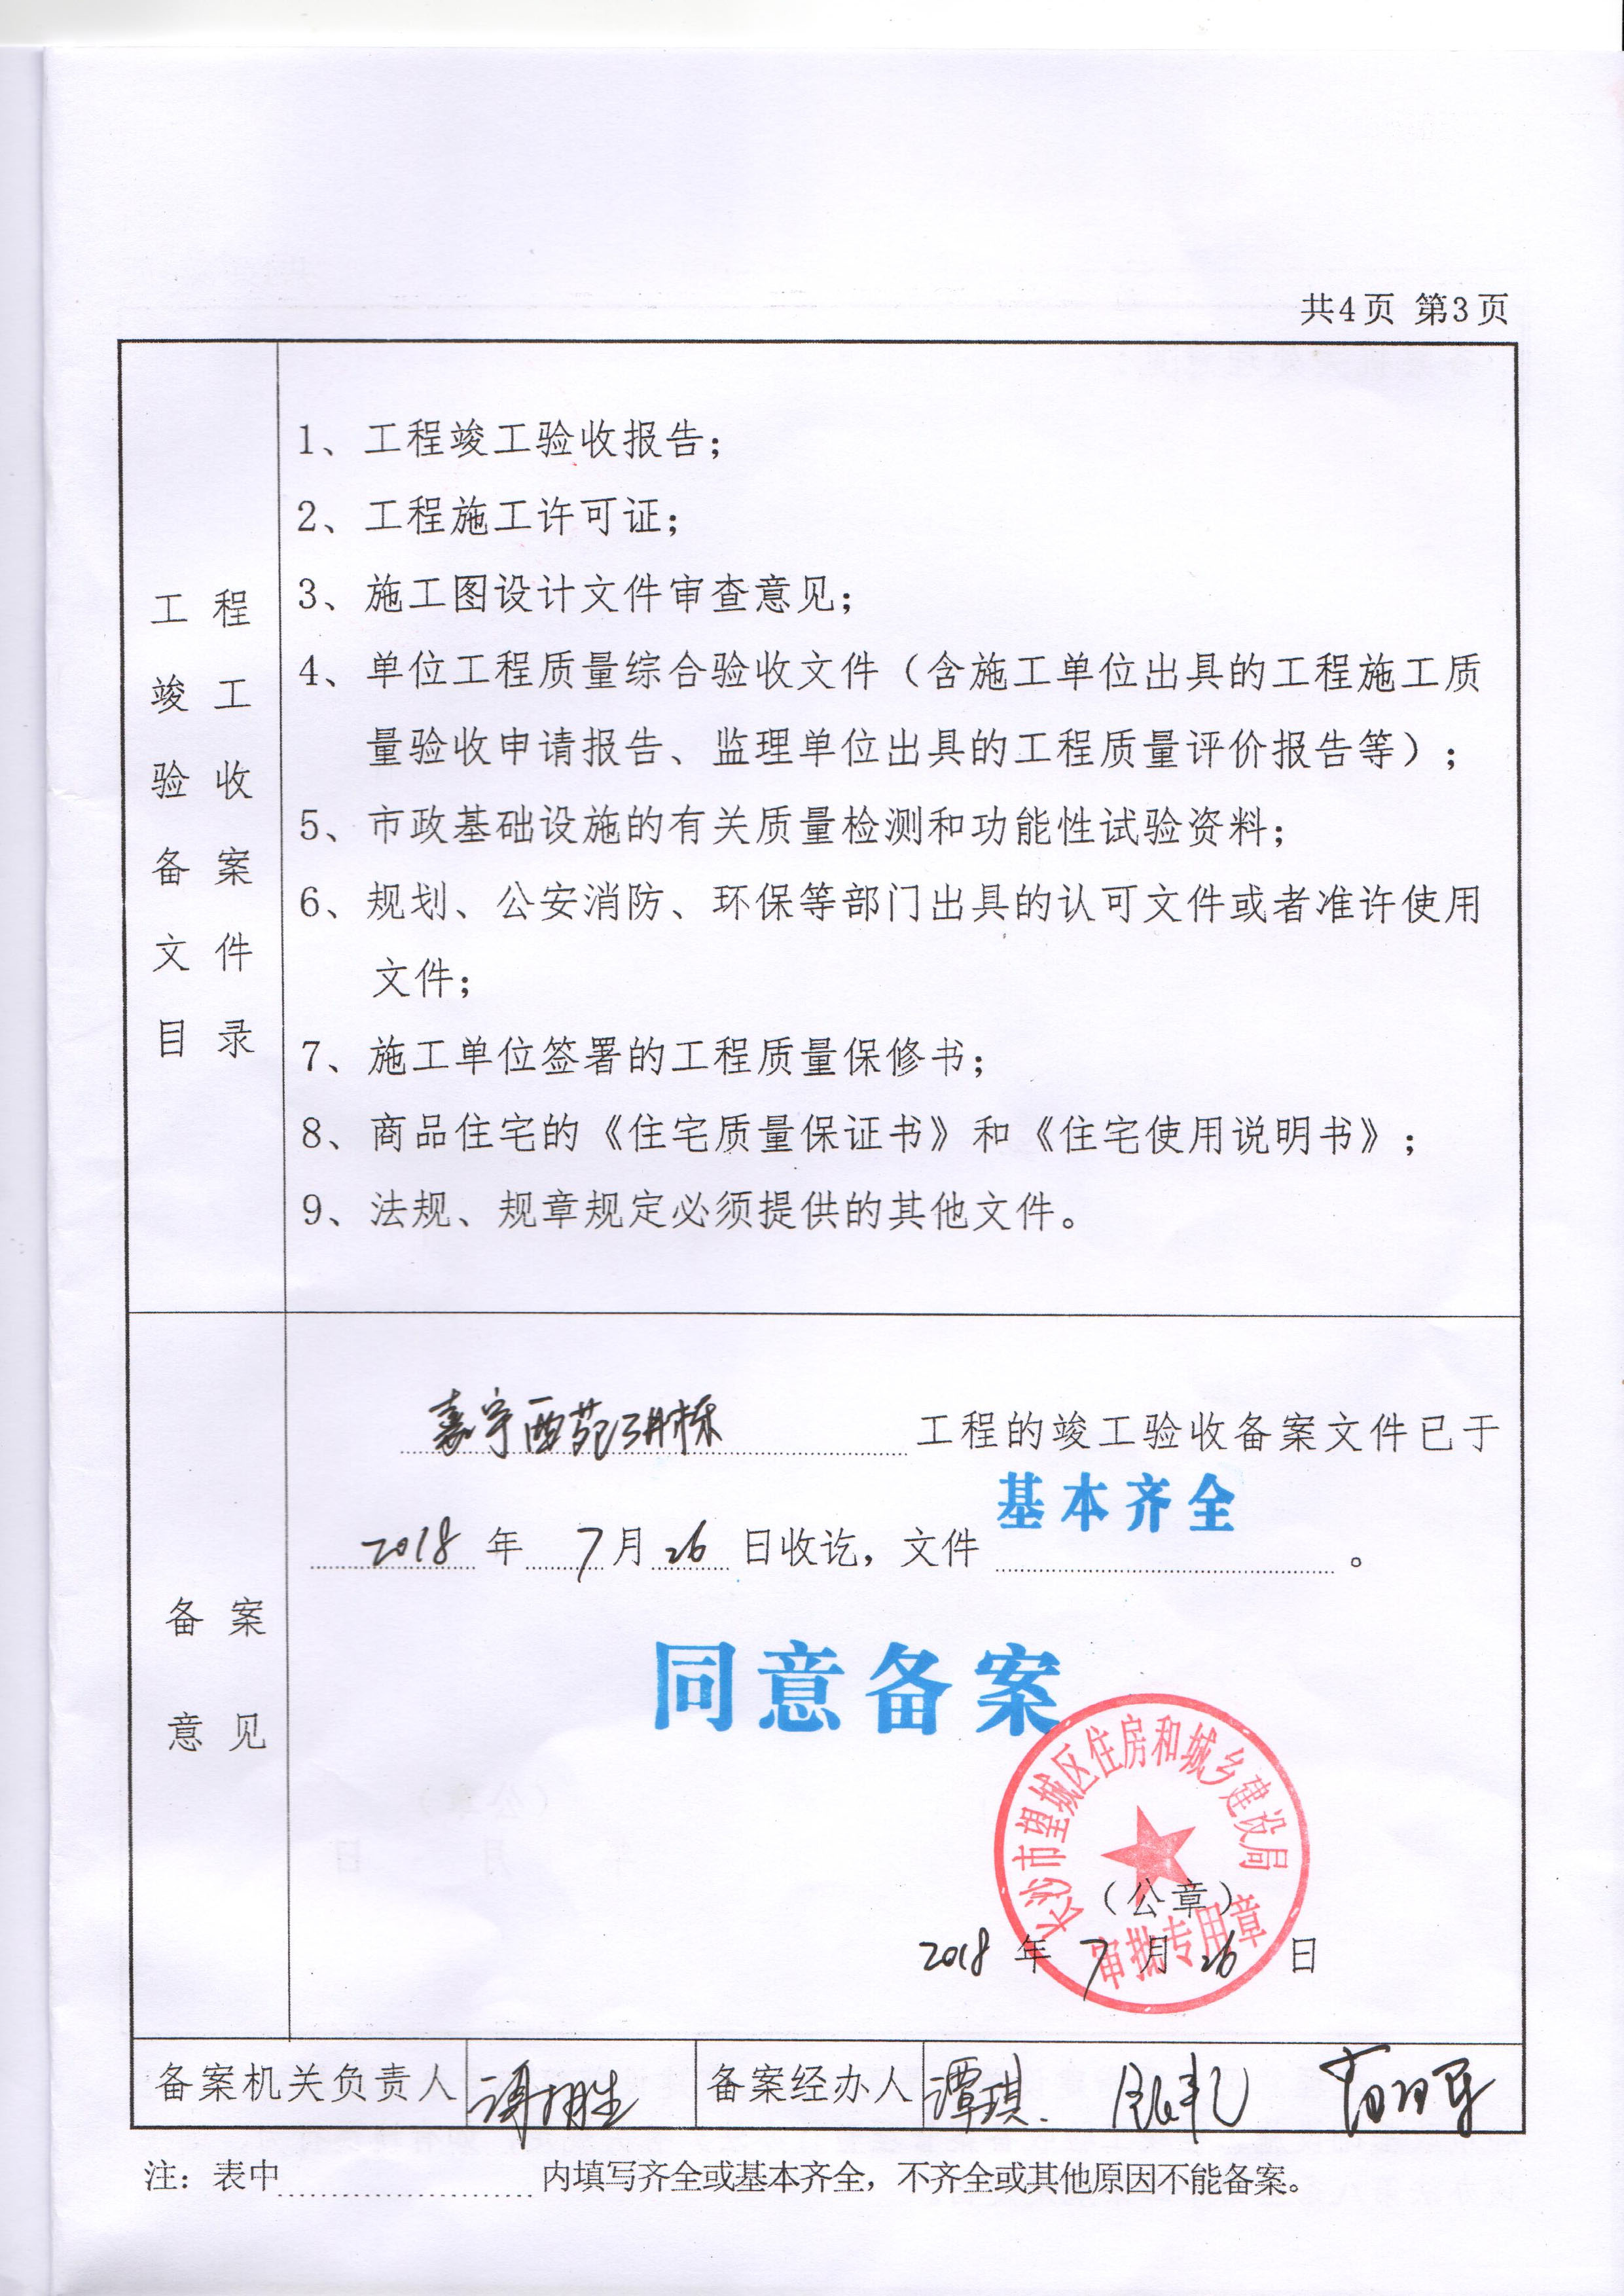 共4页 第3页
工程
竣工
验收
备案
文件
目录
1、工程竣工验收报告；
2、工程施工许可证；
3、施工图设计文件审查意见；
4、单位工程质量综合验收文件（含施工单位出具的工程施工质
量验收申请报告、监理单位出具的工程质量评价报告等）；
5、市政基础设施的有关质量检测和功能性试验资料；
6、规划、公安消防、环保等部门出具的认可文件或者准许使用
文件；
7、施工单位签署的工程质量保修书；
8、商品住宅的《住宅质量保证书》和《住宅使用说明书》；
9、法规、规章规定必须提供的其他文件。
备案
意见
嘉宇西苑 栋 工程的竣工验收备案文件已于
基本齐全
2018 年 7 月 26 日收讫，文件 。
同意备案
长沙市望城区住房和城乡建设局
（公章）
审批专用章
2018 年 7 月 26 日
备案机关负责人 备案经办人 谭琪
注：表中 内填写齐全或基本齐全，不齐全或其他原因不能备案。